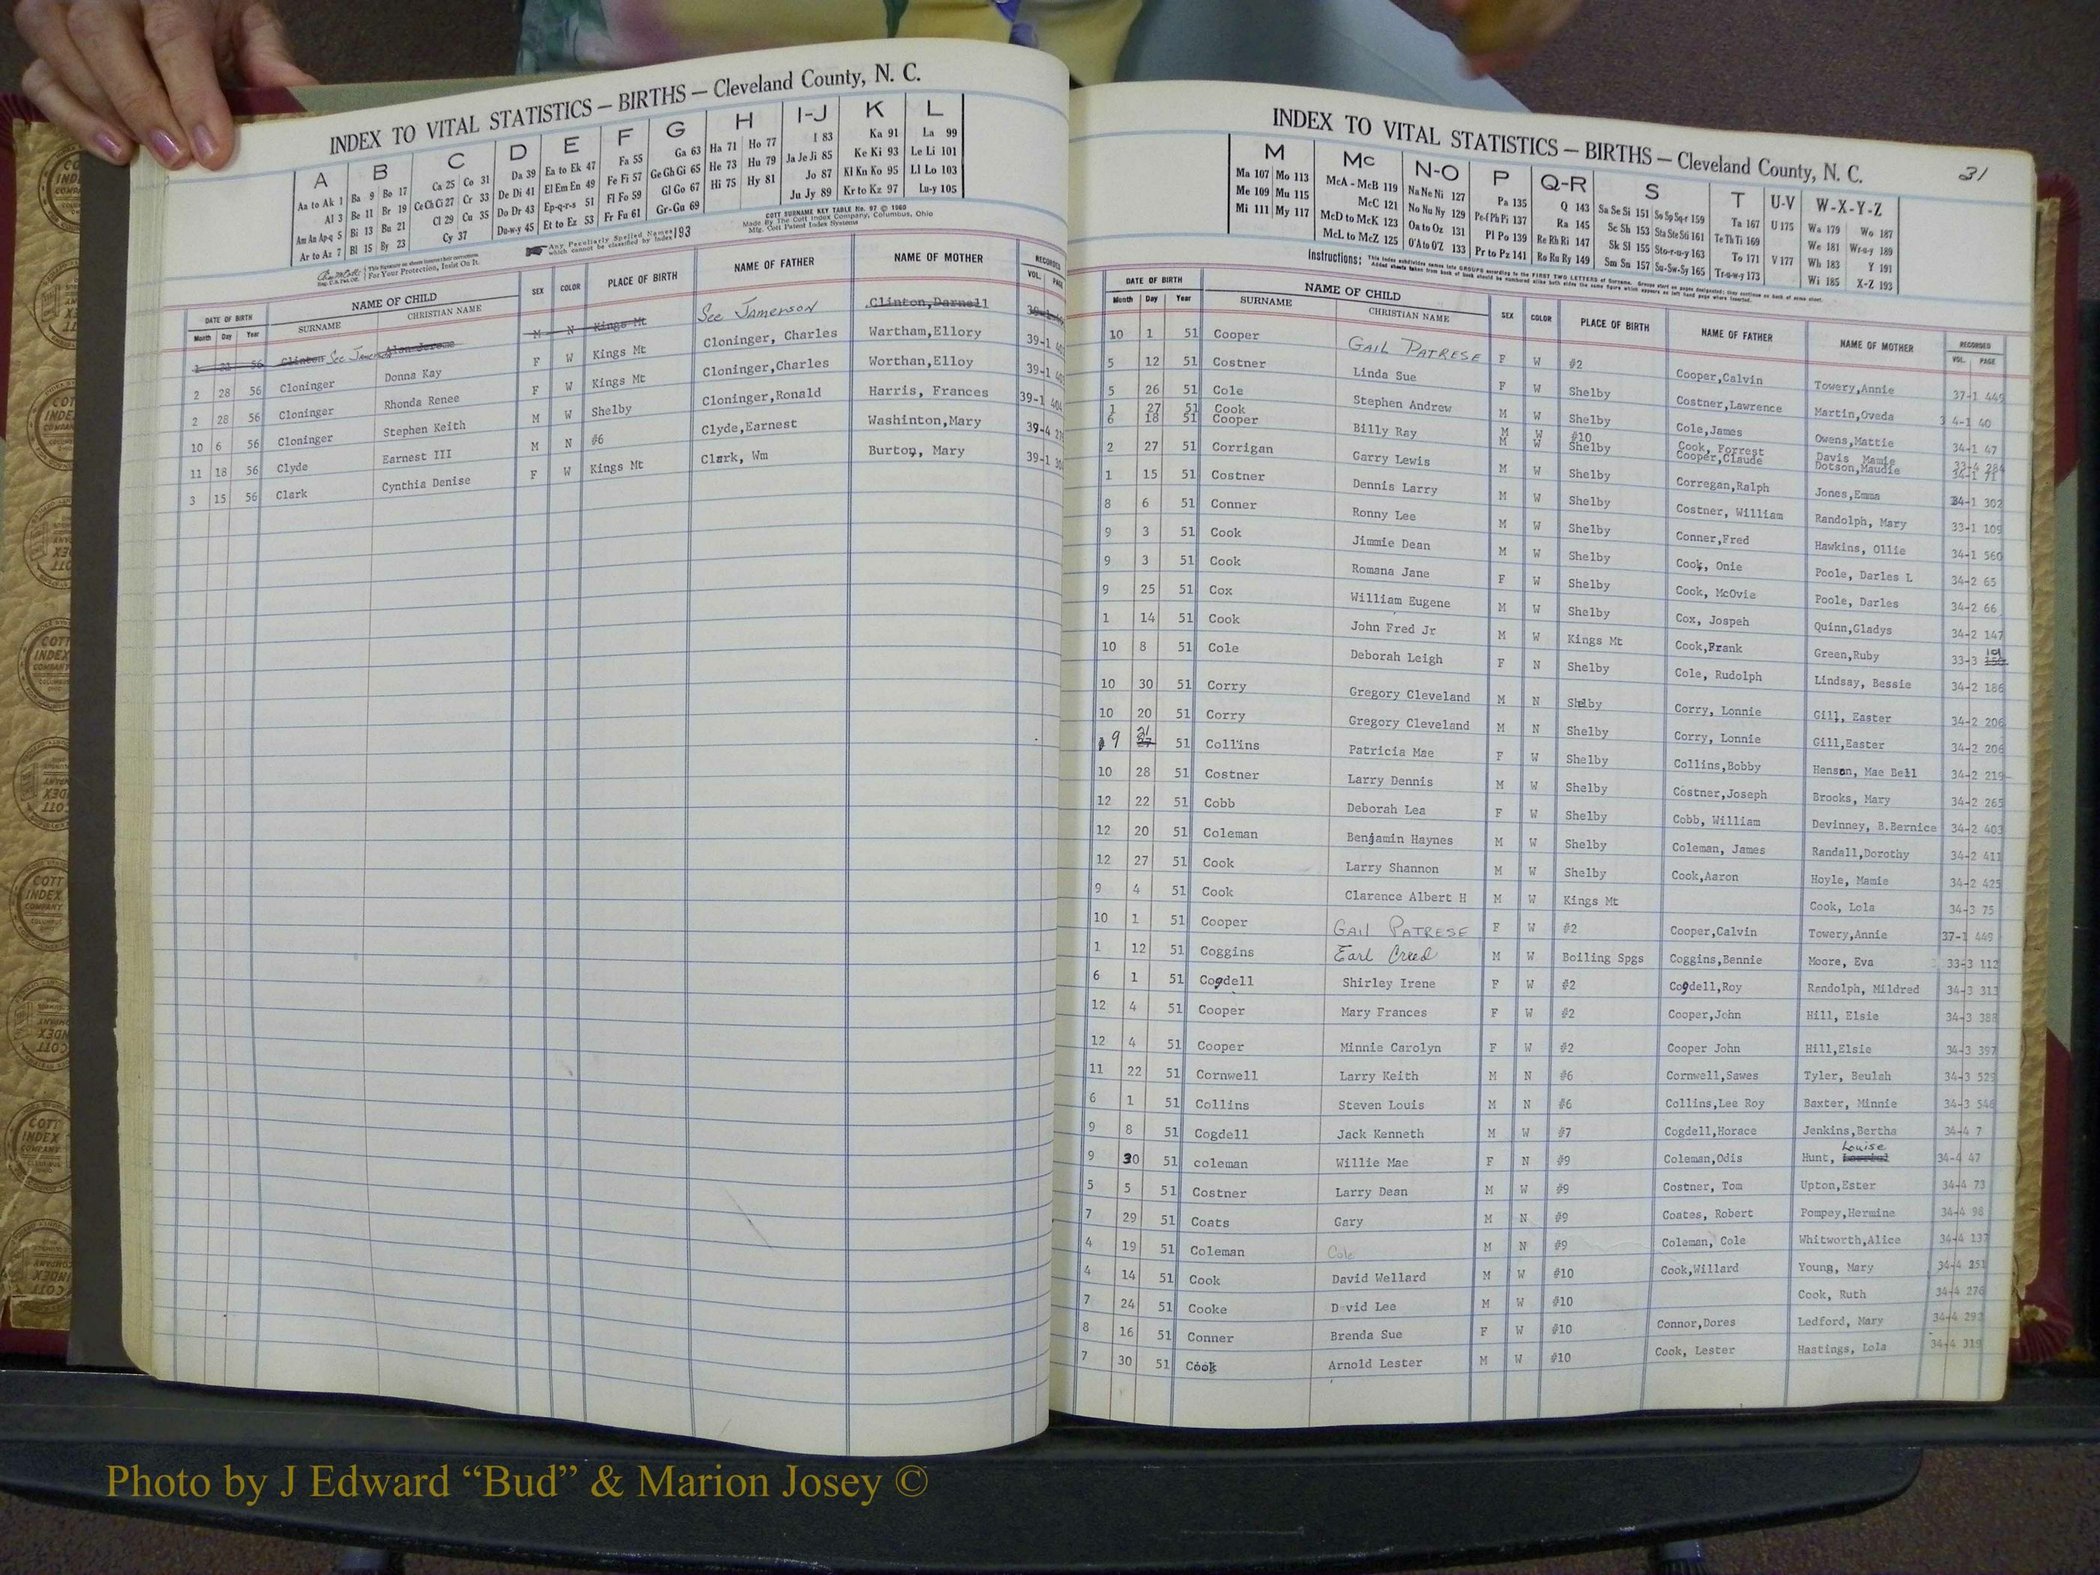 INDEX TO VITAL STATISTICS — BIRTHS — Cleveland County, N. C.
A B C D E F G H I-J K L
Aa to Ak 1 Ba 9 Bo 17 Ca 25 Co 31 Da 39 Ea to Ek 47 Fa 55 Ga 63 Ha 71 Ho 77 I 83 Ka 91 La 99
Al 3 Be 11 Br 19 Ce Ch Ci 27 Cr 33 De Di 41 El Em En 49 Fe Fi 57 Ge Gh Gi 65 He 73 Hu 79 Ja Je Ji 85 Ke Ki 93 Le Li 101
Am An Ap-q 5 Bi 13 Bu 21 Cl 29 Cu 35 Do Dr 43 Ep-q-r-s 51 Fl Fo 59 Gl Go 67 Hi 75 Hy 81 Jo 87 Kl Kn Ko 95 Ll Lo 103
Ar to Az 7 Bl 15 By 23 Cy 37 Du-w-y 45 Et to Ez 53 Fr Fu 61 Gr-Gu 69 Ju Jy 89 Kr to Kz 97 Lu-y 105
COTT SURNAME KEY TABLE No. 97 © 1960
Made By The Cott Index Company, Columbus, Ohio
Mfg. Cott Patent Index Systems
Any Peculiarly Spelled Names which cannot be classified by Index 193
For Your Protection, Insist On It.
DATE OF BIRTH NAME OF CHILD SEX COLOR PLACE OF BIRTH NAME OF FATHER NAME OF MOTHER RECORDED
Month Day Year SURNAME CHRISTIAN NAME VOL. PAGE
1 21 56 Clinton See Alan Jerome M N Kings Mt See Jamerson Clinton,Darnell
2 28 56 Cloninger Donna Kay F W Kings Mt Cloninger, Charles Wartham,Ellory 39-1
2 28 56 Cloninger Rhonda Renee F W Kings Mt Cloninger,Charles Worthan,Elloy 39-1
10 6 56 Cloninger Stephen Keith M W Shelby Cloninger,Ronald Harris, Frances 39-1 404
11 18 56 Clyde Earnest III M N #6 Clyde,Earnest Washinton,Mary 39-4
3 15 56 Clark Cynthia Denise F W Kings Mt Clark, Wm Burton, Mary 39-1
INDEX TO VITAL STATISTICS — BIRTHS — Cleveland County, N. C. 31
M Mc N-O P Q-R S T U-V W-X-Y-Z
Ma 107 Mo 113 McA - McB 119 Na Ne Ni 127 Pa 135 Q 143 Sa Se Si 151 So Sp Sq-r 159 Ta 167 U 175 Wa 179 Wo 187
Me 109 Mu 115 McC 121 No Nu Ny 129 Pe-f Ph Pi 137 Ra 145 Sc Sh 153 Sta Ste Sti 161 Te Th Ti 169 We 181 Wr-u-y 189
Mi 111 My 117 McD to McK 123 Oa to Oz 131 Pl Po 139 Re Rh Ri 147 Sk Sl 155 Sto-r-u-y 163 To 171 V 177 Wh 183 Y 191
McL to McZ 125 O'A to O'Z 133 Pr to Pz 141 Ro Ru Ry 149 Sm Sn 157 Su-Sw-Sy 165 Tr-u-w-y 173 Wi 185 X-Z 193
Instructions:
DATE OF BIRTH NAME OF CHILD SEX COLOR PLACE OF BIRTH NAME OF FATHER NAME OF MOTHER RECORDED
Month Day Year SURNAME CHRISTIAN NAME VOL. PAGE
10 1 51 Cooper GAIL PATRESE F W #2 Cooper,Calvin Towery,Annie 37-1 449
5 12 51 Costner Linda Sue F W Shelby Costner,Lawrence Martin,Oveda 34-1 40
5 26 51 Cole Stephen Andrew M W Shelby Cole,James Owens,Mattie 34-1 47
1 27 51 Cook M W #10 Cook, Forrest Davis Mamie 33-4 284
6 18 51 Cooper Billy Ray M W Shelby Cooper,Claude Dotson,Maudie 34-1 71
2 27 51 Corrigan Garry Lewis M W Shelby Corregan,Ralph Jones,Emma 34-1 302
1 15 51 Costner Dennis Larry M W Shelby Costner, William Randolph, Mary 33-1 109
8 6 51 Conner Ronny Lee M W Shelby Conner,Fred Hawkins, Ollie 34-1 560
9 3 51 Cook Jimmie Dean M W Shelby Cook, Onie Poole, Darles L 34-2 65
9 3 51 Cook Romana Jane F W Shelby Cook, McOvie Poole, Darles 34-2 66
9 25 51 Cox William Eugene M W Shelby Cox, Jospeh Quinn,Gladys 34-2 147
1 14 51 Cook John Fred Jr M W Kings Mt Cook,Frank Green,Ruby 33-3 101
10 8 51 Cole Deborah Leigh F N Shelby Cole, Rudolph Lindsay, Bessie 34-2 186
10 30 51 Corry Gregory Cleveland M N Shelby Corry, Lonnie Gill, Easter 34-2 206
10 20 51 Corry Gregory Cleveland M N Shelby Corry, Lonnie Gill,Easter 34-2 206
9 21 27 51 Collins Patricia Mae F W Shelby Collins,Bobby Henson, Mae Bell 34-2 219
10 28 51 Costner Larry Dennis M W Shelby Costner,Joseph Brooks, Mary 34-2 265
12 22 51 Cobb Deborah Lea F W Shelby Cobb, William Devinney, B.Bernice 34-2 403
12 20 51 Coleman Benjamin Haynes M W Shelby Coleman, James Randall,Dorothy 34-2 411
12 27 51 Cook Larry Shannon M W Shelby Cook,Aaron Hoyle, Mamie 34-2 425
9 4 51 Cook Clarence Albert H M W Kings Mt Cook, Lola 34-3 75
10 1 51 Cooper GAIL PATRESE F W #2 Cooper,Calvin Towery,Annie 37-1 449
1 12 51 Coggins Earl Creed M W Boiling Spgs Coggins,Bennie Moore, Eva 33-3 112
6 1 51 Cogdell Shirley Irene F W #2 Cogdell,Roy Randolph, Mildred 34-3 313
12 4 51 Cooper Mary Frances F W #2 Cooper,John Hill, Elsie 34-3 388
12 4 51 Cooper Minnie Carolyn F W #2 Cooper John Hill,Elsie 34-3 397
11 22 51 Cornwell Larry Keith M N #6 Cornwell,Sawes Tyler, Beulah 34-3 529
6 1 51 Collins Steven Louis M N #6 Collins,Lee Roy Baxter, Minnie 34-3 546
9 8 51 Cogdell Jack Kenneth M W #7 Cogdell,Horace Jenkins,Bertha 34-4 7
9 30 51 coleman Willie Mae F N #9 Coleman,Odis Hunt, Louise 34-4 47
5 5 51 Costner Larry Dean M W #9 Costner, Tom Upton,Ester 34-4 73
7 29 51 Coats Gary M N #9 Coates, Robert Pompey,Hermine 34-4 98
4 19 51 Coleman Cole M N #9 Coleman, Cole Whitworth,Alice 34-4 137
4 14 51 Cook David Wellard M W #10 Cook,Willard Young, Mary 34-4 251
7 24 51 Cooke D vid Lee M W #10 Cook, Ruth 34-4 276
8 16 51 Conner Brenda Sue F W #10 Connor,Dores Ledford, Mary 34-4 292
7 30 51 Cook Arnold Lester M W #10 Cook, Lester Hastings, Lola 34-4 319
Photo by J Edward “Bud” & Marion Josey ©